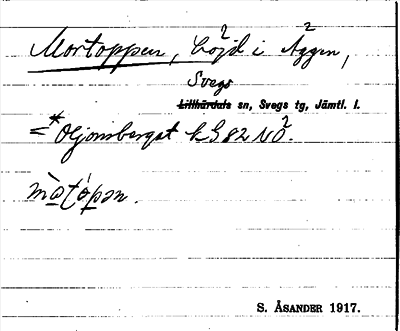 Mortoppen, höjd i Äggen,
Svegs
Lillhärdals sn, Svegs tg, Jämtl. l.
= *Oljonsberget k. S 82 NÖ.
mò̱tó̱pən.
S. ÅSANDER 1917.